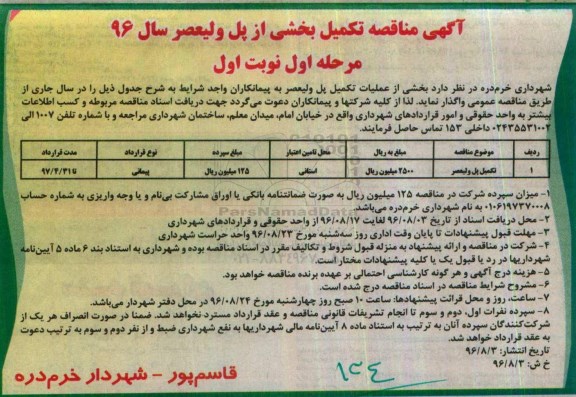 آگهی مناقصه تکمیل بخشی از پل ولیعصر سال ۹۶
مرحله اول نوبت اول
شهرداری خرمدره در نظر دارد بخشی از عملیات تکمیل پل ولیعصر به پیمانکاران واجد شرایط به شرح جدول ذیل را در سال جاری از
طریق مناقصه عمومی واگذار نماید. لذا از کلیه شرکتها و پیمانکاران دعوت می‌گردد جهت دریافت اسناد مناقصه مربوطه و کسب اطلاعات
بیشتر به واحد حقوقی و امور قراردادهای شهرداری واقع در خیابان امام، میدان معلم، ساختمان شهرداری مراجعه و با شماره تلفن ۱۰۰۷ الی
۰۲۴۳۵۵۳۱۰۰۲ داخلی ۱۵۳ تماس حاصل فرمایند.
ردیف موضوع مناقصه مبلغ به ریال محل تامین اعتبار مبلغ سپرده نوع قرارداد مدت قرارداد
۱ تکمیل پل ولیعصر ۲۵۰۰ میلیون ریال استانی ۱۲۵ میلیون ریال پیمانی تا ۹۷/۲/۳۱
۱- میزان سپرده شرکت در مناقصه ۱۲۵ میلیون ریال به صورت ضمانتنامه بانکی یا اوراق مشارکت بی‌نام و یا وجه واریزی به شماره حساب
۰۱۰۶۱۹۷۳۷۰۰۰۸ به نام شهرداری خرم‌دره می‌باشد.
۲- محل دریافت اسناد از تاریخ ۹۶/۰۸/۰۳ لغایت ۹۶/۰۸/۱۷ از واحد حقوقی و قراردادهای شهرداری
۳- مهلت قبول پیشنهادات تا پایان وقت اداری روز سه‌شنبه مورخ ۹۶/۰۸/۲۳ واحد حراست شهرداری
۴- شرکت در مناقصه و ارائه پیشنهاد به منزله قبول شروط و تکالیف مقرر در اسناد مناقصه بوده و شهرداری به استناد بند ۶ ماده ۵ آیین‌نامه
شهرداریها در رد یا قبول یک یا کلیه پیشنهادات مختار است.
۵- هزینه درج آگهی و هر گونه کارشناسی احتمالی بر عهده برنده مناقصه خواهد بود.
۶- مشروح شرایط مناقصه در اسناد مناقصه درج شده است.
۷- ساعت، روز و محل قرائت پیشنهادها: ساعت ۱۰ صبح روز چهارشنبه مورخ ۹۶/۰۸/۲۴ در محل دفتر شهردار می‌باشد.
۸- سپرده نفرات اول، دوم و سوم تا انجام تشریفات قانونی مناقصه و عقد قرارداد مسترد نخواهد شد. ضمنا در صورت انصراف هر یک از
شرکت‌کنندگان سپرده آنان به ترتیب به استناد ماده ۸ آیین‌نامه مالی شهرداریها به نفع شهرداری ضبط و از نفر دوم و سوم به ترتیب دعوت
به عقد قرارداد خواهد شد.
تاریخ انتشار: ۹۶/۸/۳
خ ش: ۹۶/۸/۳
۱۳۴
قاسم‌پور - شهردار خرم‌دره